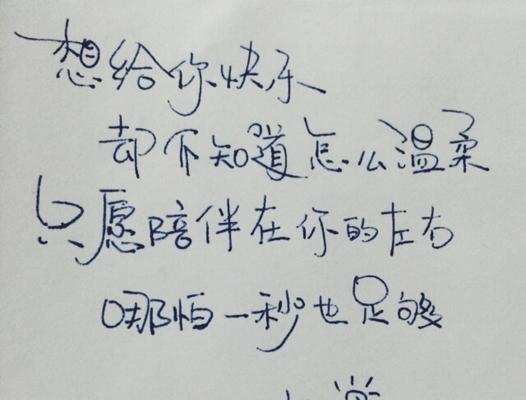 想给你快乐
却不知道怎么温柔
只愿陪伴在你的左右
哪怕一秒也足够